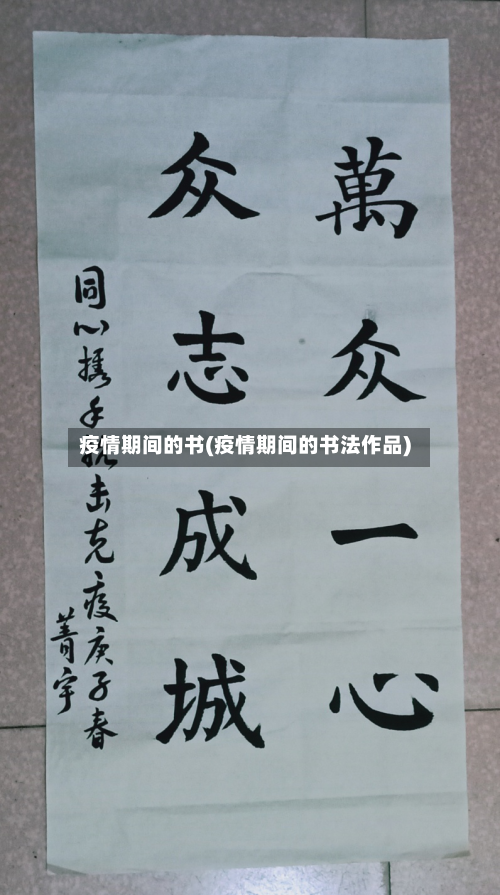 萬众一心
众志成城
同心携手抗击克疫庚子春
菁宇
疫情期间的书(疫情期间的书法作品)